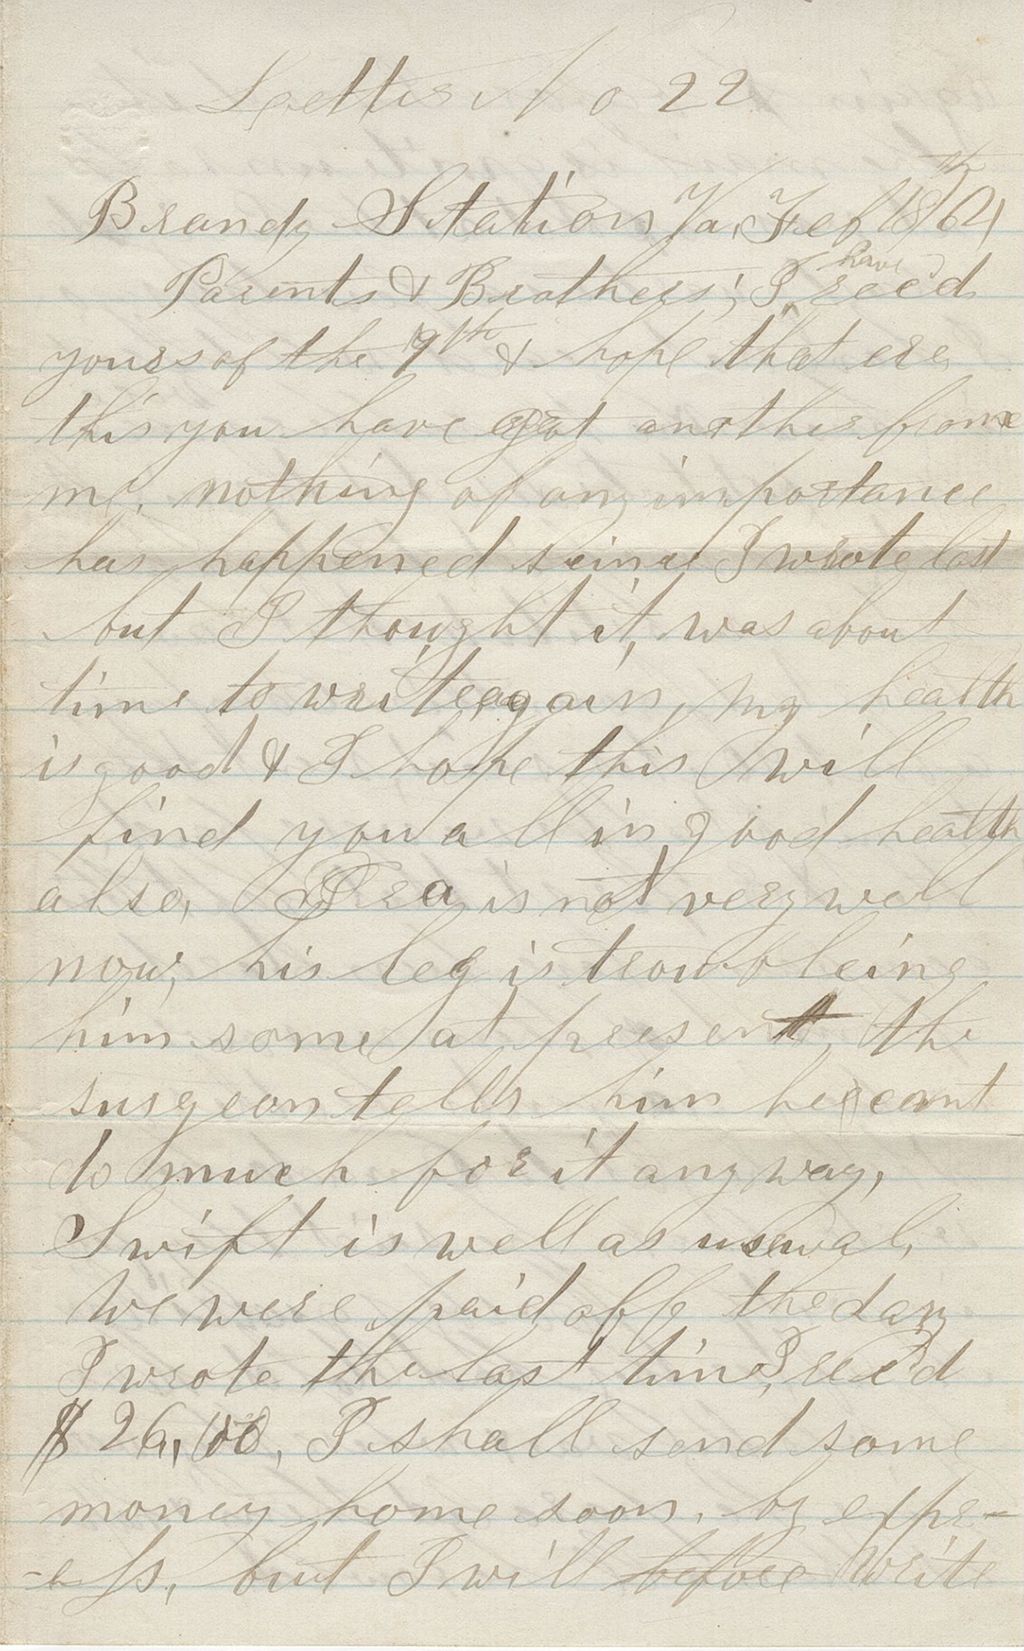 Letter No 22
Brandy Station Va, Feb 1864
Parents & Brothers; I have recd
yours of the 9th & hope that ere
this you have got another from
me. nothing of any importance
has happened since I wrote last
but I thought it, was about
time to write again, my health
is good & I hope this will
find you all in good health
also, Ira is not very well
now, his leg is troubleing
him some at present the
surgeon tells him he cant
do much for it any way,
Swift is well as usewal,
We were paid off the day
I wrote the last time, I rec'd
$ 26,00, I shall send some
money home soon. by expre-
-ss, but I will before write